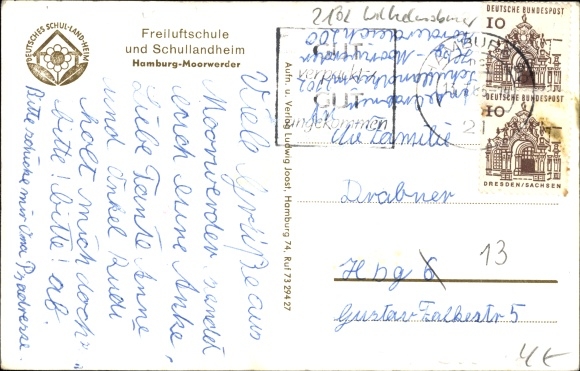 DEUTSCHES SCHUL-LAND-HEIM
Freiluftschule
und Schullandheim
Hamburg-Moorwerder
Viele Grüße aus
Moorwerder sendet
euch eure Anke,
Liebe Tante Anne
und Onkel Rudi
holt mich doch
bitte! bitte! ab.
Bitte schicke mir Oma Ps adresse.
Aufn. u. Verlag Ludwig Joost, Hamburg 74, Ruf 73 29 427
2102 Wilhelmsburg
GUT
verpackt
GUT
angekommen
HAMBURG
21
DEUTSCHE BUNDESPOST
10
DEUTSCHE BUNDESPOST
10
DRESDEN/SACHSEN
An Familie
Drabner
Hbg 6
13
Gustav Falkestr 5
4€